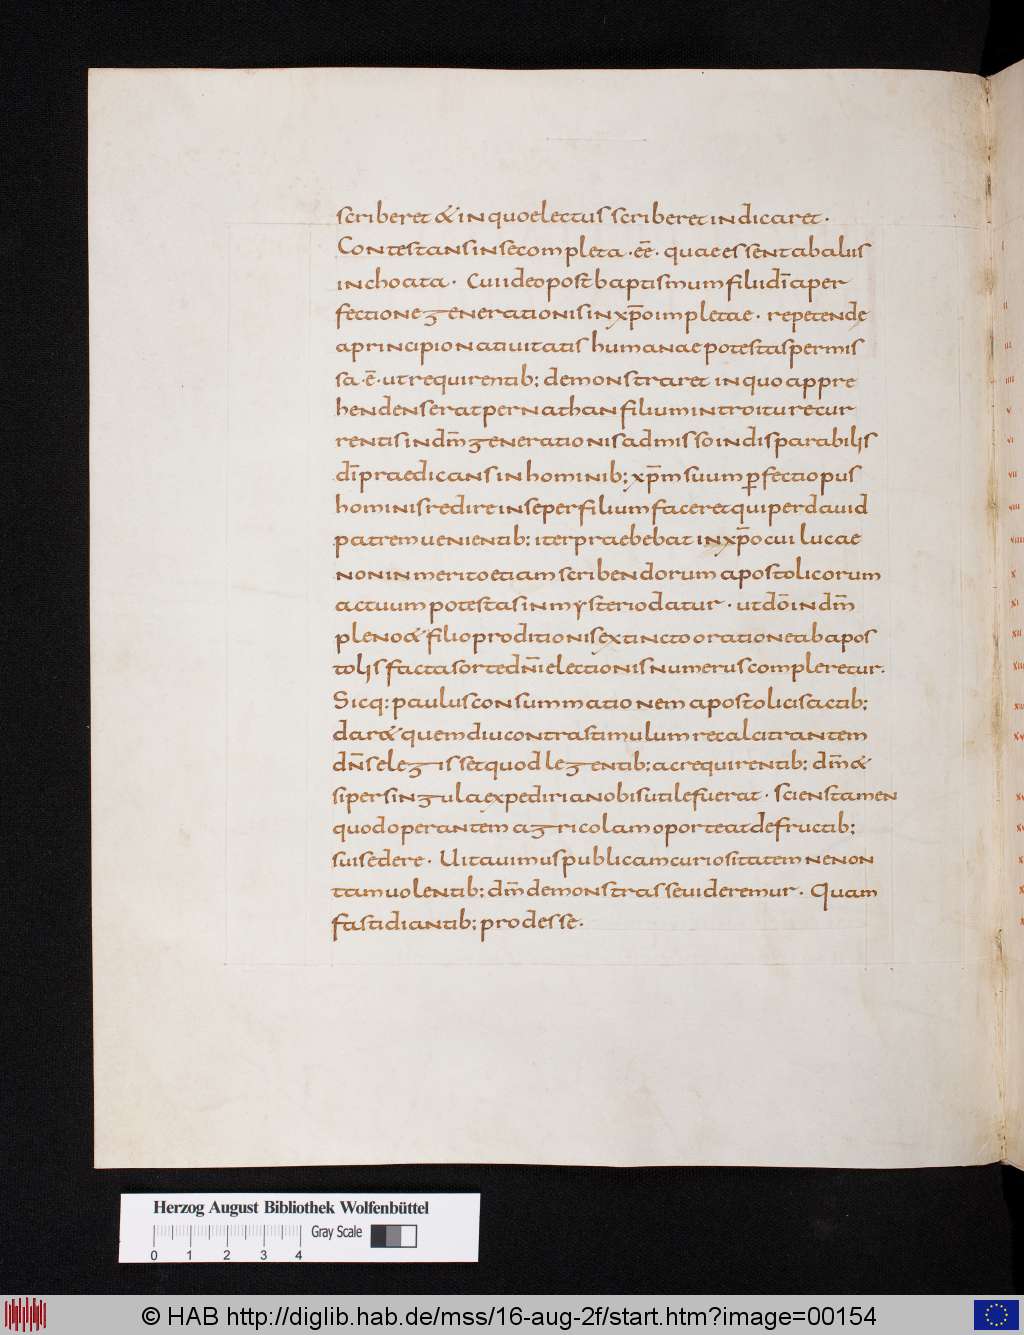 scriberet & in quo electus scriberet indicaret ·
Contestans in se completa · eē · quae essent ab aliis
inchoata · Cui ideo post baptismum filii dī a per
fectione generationis in xp̄o impletae · repetende
a principio nativitatis humanae potestas permis
sa · ē · ut requirentib; demonstraret in quo appre
hendens erat per nathan filium introitu recur
rentis in dm̄ generationis admisso indisparabilis
dī praedicans in hominib; xp̄m suum ꝑfecti opus
hominis redire in se per filium faceret qui per david
patrem venientib; iter praebebat in xp̄o cui lucae
non inmerito etiam scribendorum apostolicorum
actuum potestas in mysterio datur · ut dō in dm̄
pleno & filio proditionis extincto oratione ab apos
tolis facta sorte dn̄i electionis numerus compleretur.
Sicq; paulus consummationem apostolicis actib;
dar& quem diu contra stimulum recalcitrantem
dn̄s elegisset quod legentib; ac requirentib; dm̄ &
si per singula expediri a nobis utile fuerat · sciens tamen
quod operantem agricolam oporteat de fructib;
suis edere · Uitavimus publicam curiositatem ne non
tam volentib; dm̄ demonstrasse videremur · Quam
fastidiantib; prodesse.
I
II
III
IIII
V
VI
VII
VIII
VIIII
X
XI
XII
Herzog August Bibliothek Wolfenbüttel
Gray Scale
0 1 2 3 4
© HAB http://diglib.hab.de/mss/16-aug-2f/start.htm?image=00154